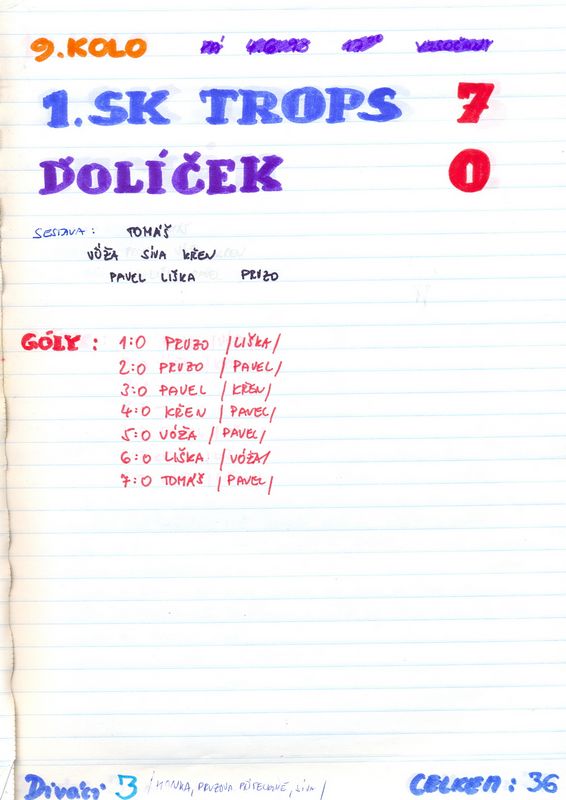 9. KOLO PÁ 17°°
1.SK TROPS 7
ĎOLÍČEK 0
SESTAVA : TOMÁŠ
VÓŽA SÍVA KŘEN
PAVEL LIŠKA PRUZO
GÓLY : 1:0 PRUZO /LIŠKA/
2:0 PRUZO /PAVEL/
3:0 PAVEL /KŘEN/
4:0 KŘEN /PAVEL/
5:0 VÓŽA /PAVEL/
6:0 LIŠKA /VÓŽA/
7:0 TOMÁŠ /PAVEL/
Diváci 3 /HONKA, PRUZOVA PŘÍTELKYNĚ, SÍVA/ CELKEM : 36